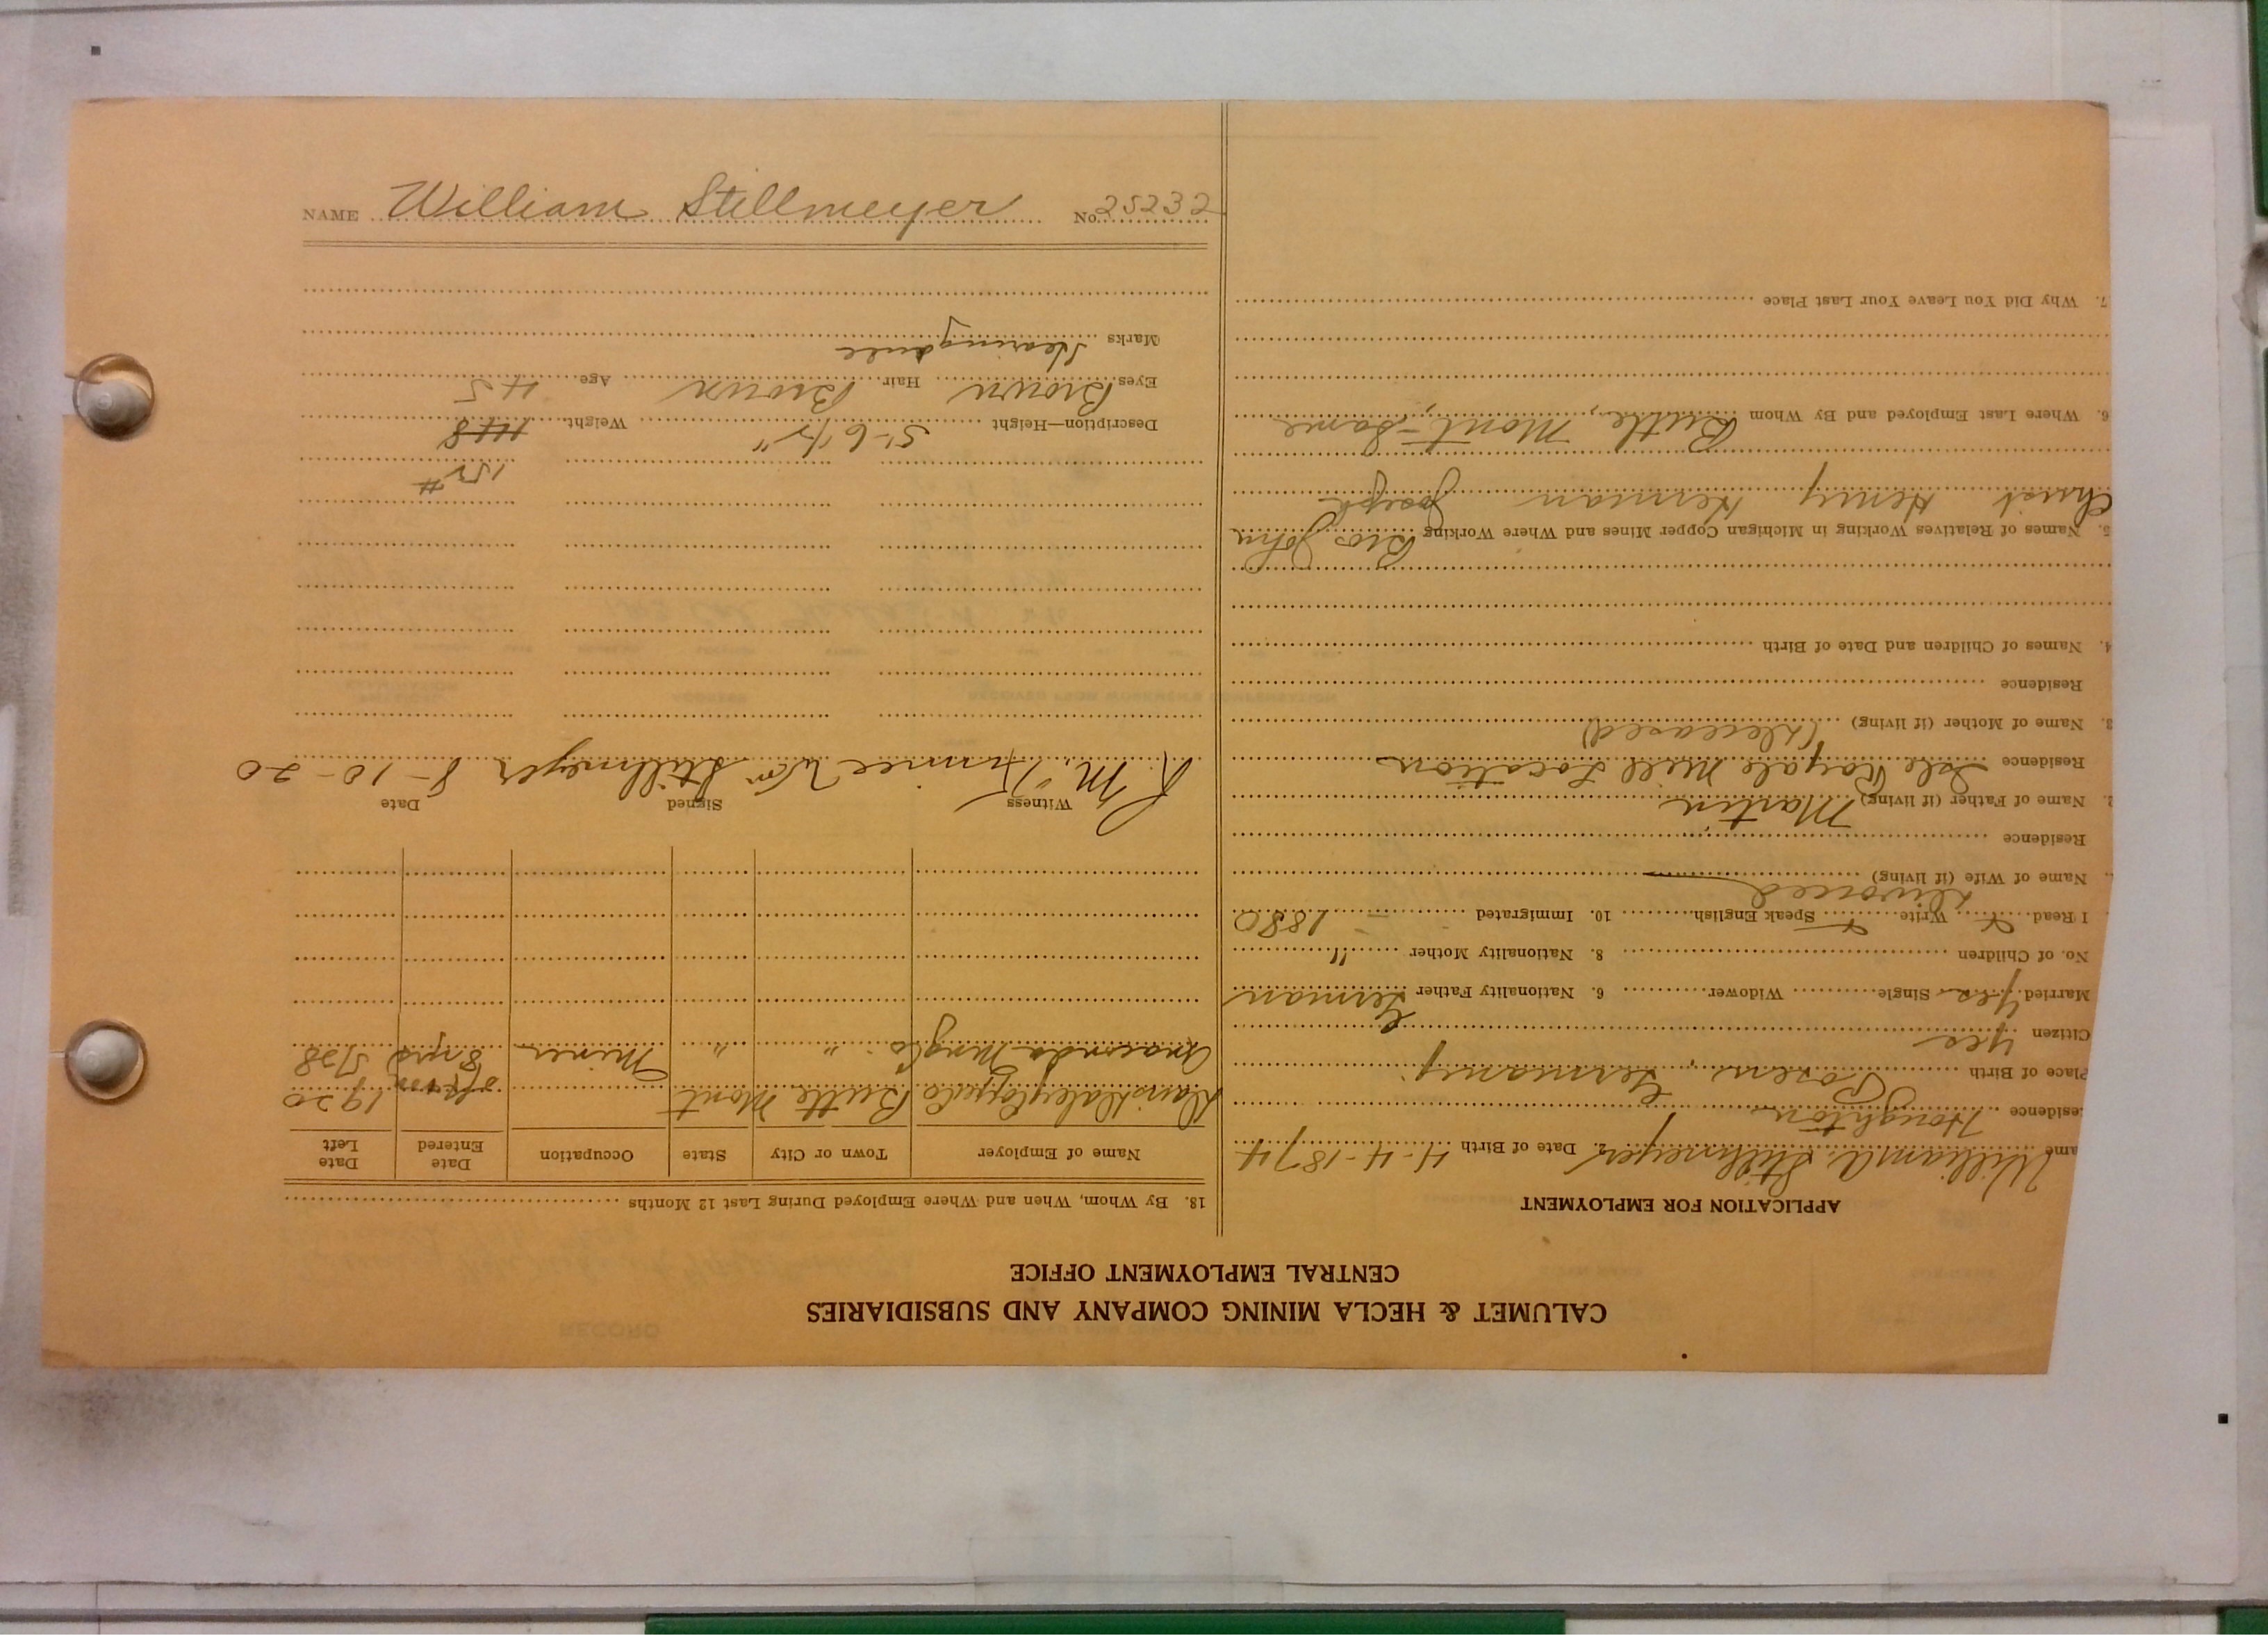 NAME William Stillmeyer No. 25232
CALUMET & HECLA MINING COMPANY AND SUBSIDIARIES
CENTRAL EMPLOYMENT OFFICE
APPLICATION FOR EMPLOYMENT
ame William Stillmeyer 2. Date of Birth 4-4-1874
esidence Houghton
Place of Birth Posen, Germany
Citizen yes
Married yes Single Widower 6. Nationality Father German
No. of Children 8. Nationality Mother "
I Read X Write X Speak English 10. Immigrated 1880
Name of Wife (if living) Divorced
Residence
2. Name of Father (if living) Martin
Residence Isle Royale Mill Location
3. Name of Mother (if living) (Deceased)
Residence
4. Names of Children and Date of Birth
5. Names of Relatives Working in Michigan Copper Mines and Where Working Bros. John
Christ Henry Herman Joseph
6. Where Last Employed and By Whom Butte, Mont - Same
7. Why Did You Leave Your Last Place
18. By Whom, When and Where Employed During Last 12 Months
Name of Employer Town or City State Occupation Date Entered Date Left
Davis Daley Copper Co Butte Mont 1920
Anaconda Mng Co " " Miner 8 yrs 5/28
Witness Signed Date
Wm Stillmeyer 8-10-20
152 #
Description—Height 5'-6 1/2" Weight 148
Eyes Brown Hair Brown Age 45
Marks Hearing dull